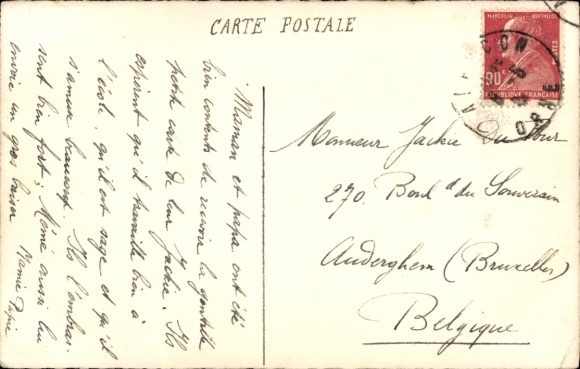 CARTE POSTALE
Maman et papa ont été
bien contents de recevoir la gentille
petite carte de leur Jackie. Ils
espèrent qu'il travaille bien à
l'école, qu'il est sage et qu'il
s'amuse beaucoup. Ils l'embras-
sent bien fort; Mémé aussi lui
envoie un gros baiser
Mamie Papie
MARCELIN BERTHELOT
POSTES
90c
REPUBLIQUE FRANÇAISE
ALENCON
ORNE
Monsieur Jackie Du four
270, Boul d du Souverain
Auderghem (Bruxelles)
Belgique